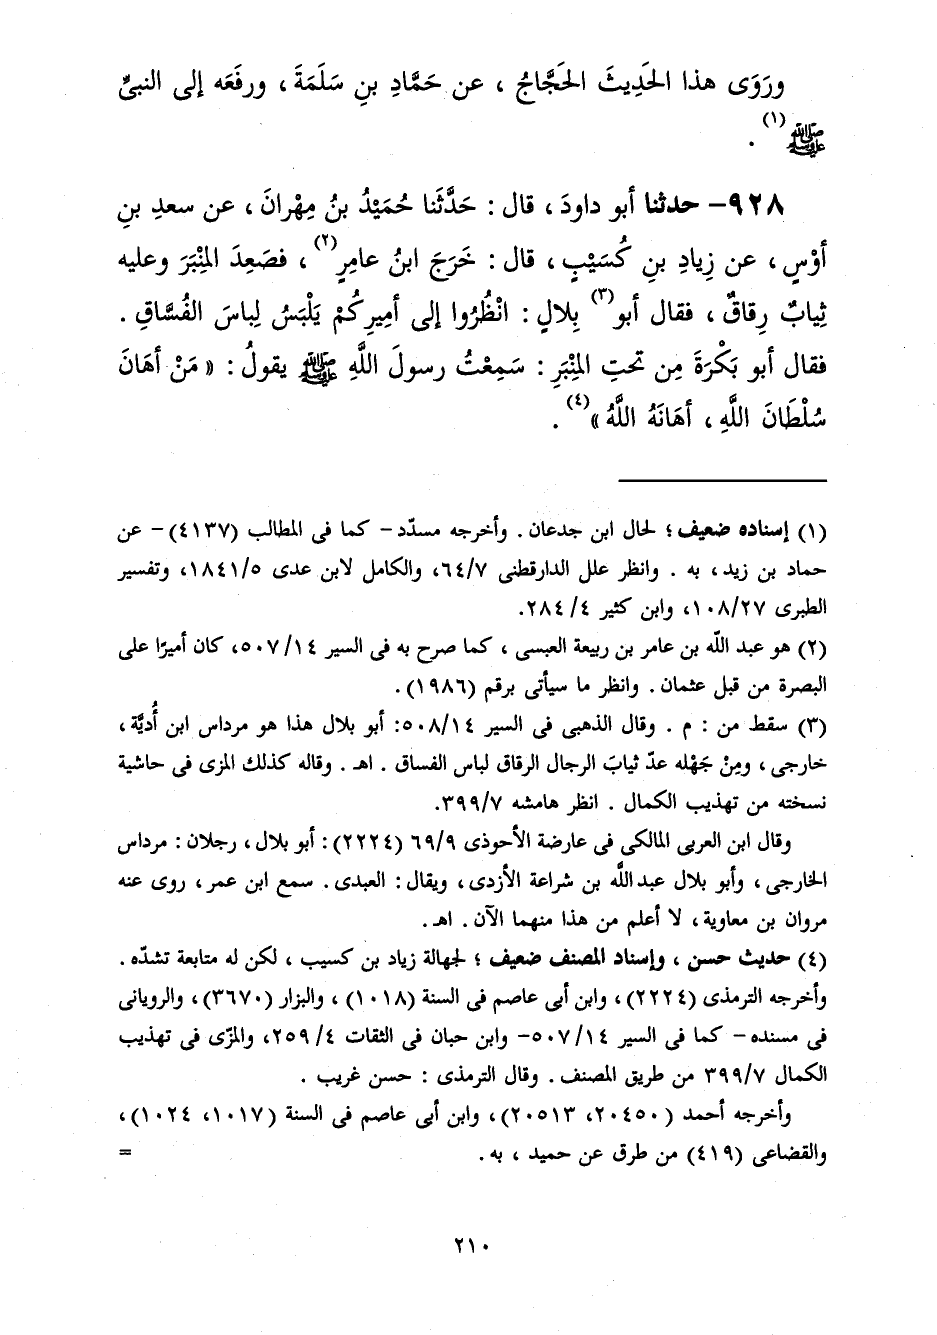 ورَوَى هذا الحَدِيثَ الحَجَّاجُ ، عن حَمَّادِ بنِ سَلَمَةَ ، ورفَعَه إلى النبىِّ
ﷺ(١) .
٩٢٨- حدثنا أبو داودَ ، قال : حَدَّثَنا حُمَيْدُ بنُ مِهْرانَ ، عن سعدِ بنِ
أوْسٍ ، عن زِيادِ بنِ كُسَيْبٍ ، قال : خَرَجَ ابنُ عامِرٍ(٢) ، فصَعِدَ المِنْبَرَ وعليه
ثِيابٌ رِقاقٌ ، فقال أبو(٣) بِلالٍ : انْظُرُوا إلى أميرِكُمْ يَلْبَسُ لِباسَ الفُسَّاقِ .
فقال أبو بَكْرَةَ مِن تحتِ المِنْبَرِ : سَمِعْتُ رسولَ اللَّهِ ﷺ يقولُ : « مَنْ أهَانَ
سُلْطَانَ اللَّهِ ، أهَانَهُ اللَّهُ »(٤) .
(١) إسناده ضعيف ؛ لحال ابن جدعان . وأخرجه مسدّد - كما فى المطالب (٤١٣٧) - عن
حماد بن زيد ، به . وانظر علل الدارقطنى ٦٤/٧، والكامل لابن عدى ١٨٤١/٥، وتفسير
الطبرى ١٠٨/٢٧، وابن كثير ٤/ ٢٨٤.
(٢) هو عبد اللَّه بن عامر بن ربيعة العبسى ، كما صرح به فى السير ٥٠٧/١٤، كان أميرًا على
البصرة من قبل عثمان . وانظر ما سيأتى برقم (١٩٨٦) .
(٣) سقط من : م . وقال الذهبى فى السير ٥٠٨/١٤: أبو بلال هذا هو مرداس ابن أُديَّة ،
خارجى ، ومِنْ جَهْله عدّ ثيابَ الرجال الرقاق لباس الفساق . اهـ . وقاله كذلك المزى فى حاشية
نسخته من تهذيب الكمال . انظر هامشه ٣٩٩/٧.
وقال ابن العربى المالكى فى عارضة الأحوذى ٦٩/٩ (٢٢٢٤) : أبو بلال ، رجلان : مرداس
الخارجى ، وأبو بلال عبد اللَّه بن شراعة الأزدى ، ويقال : العبدى . سمع ابن عمر ، روى عنه
مروان بن معاوية ، لا أعلم من هذا منهما الآن . اهـ .
(٤) حديث حسن ، وإسناد المصنف ضعيف ؛ لجهالة زياد بن كسيب ، لكن له متابعة تشدّه .
وأخرجه الترمذى (٢٢٢٤) ، وابن أبى عاصم فى السنة (١٠١٨) ، والبزار (٣٦٧٠) ، والرويانى
فى مسنده - كما فى السير ٥٠٧/١٤ - وابن حبان فى الثقات ٤/ ٢٥٩، والمزّى فى تهذيب
الكمال ٣٩٩/٧ من طريق المصنف . وقال الترمذى : حسن غريب .
وأخرجه أحمد (٢٠٤٥٠، ٢٠٥١٣) ، وابن أبى عاصم فى السنة (١٠١٧، ١٠٢٤) ،
والقضاعى (٤١٩) من طرق عن حميد ، به . =
٢١٠